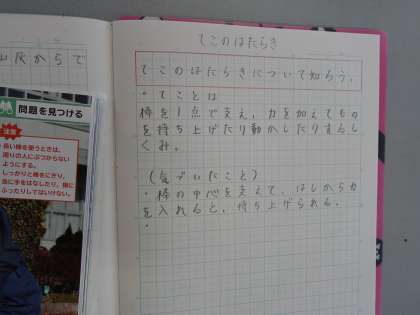 山灰からで
問題を見つける
注意
長い棒を使うときは、
周りの人にぶつからない
ようにする。
しっかりと棒をにぎり、
急に手をはなしたり、棒に
ぶつかったりしてはいけない。
てこのはたらき
てこのはたらきについて知ろう。
・てことは
棒を1点で支え、力を加えてもの
を持ち上げたり動かしたりするし
くみ。
(気づいたこと)
・棒の中心を支えて、はしから力
を入れると、持ち上げられる。
・